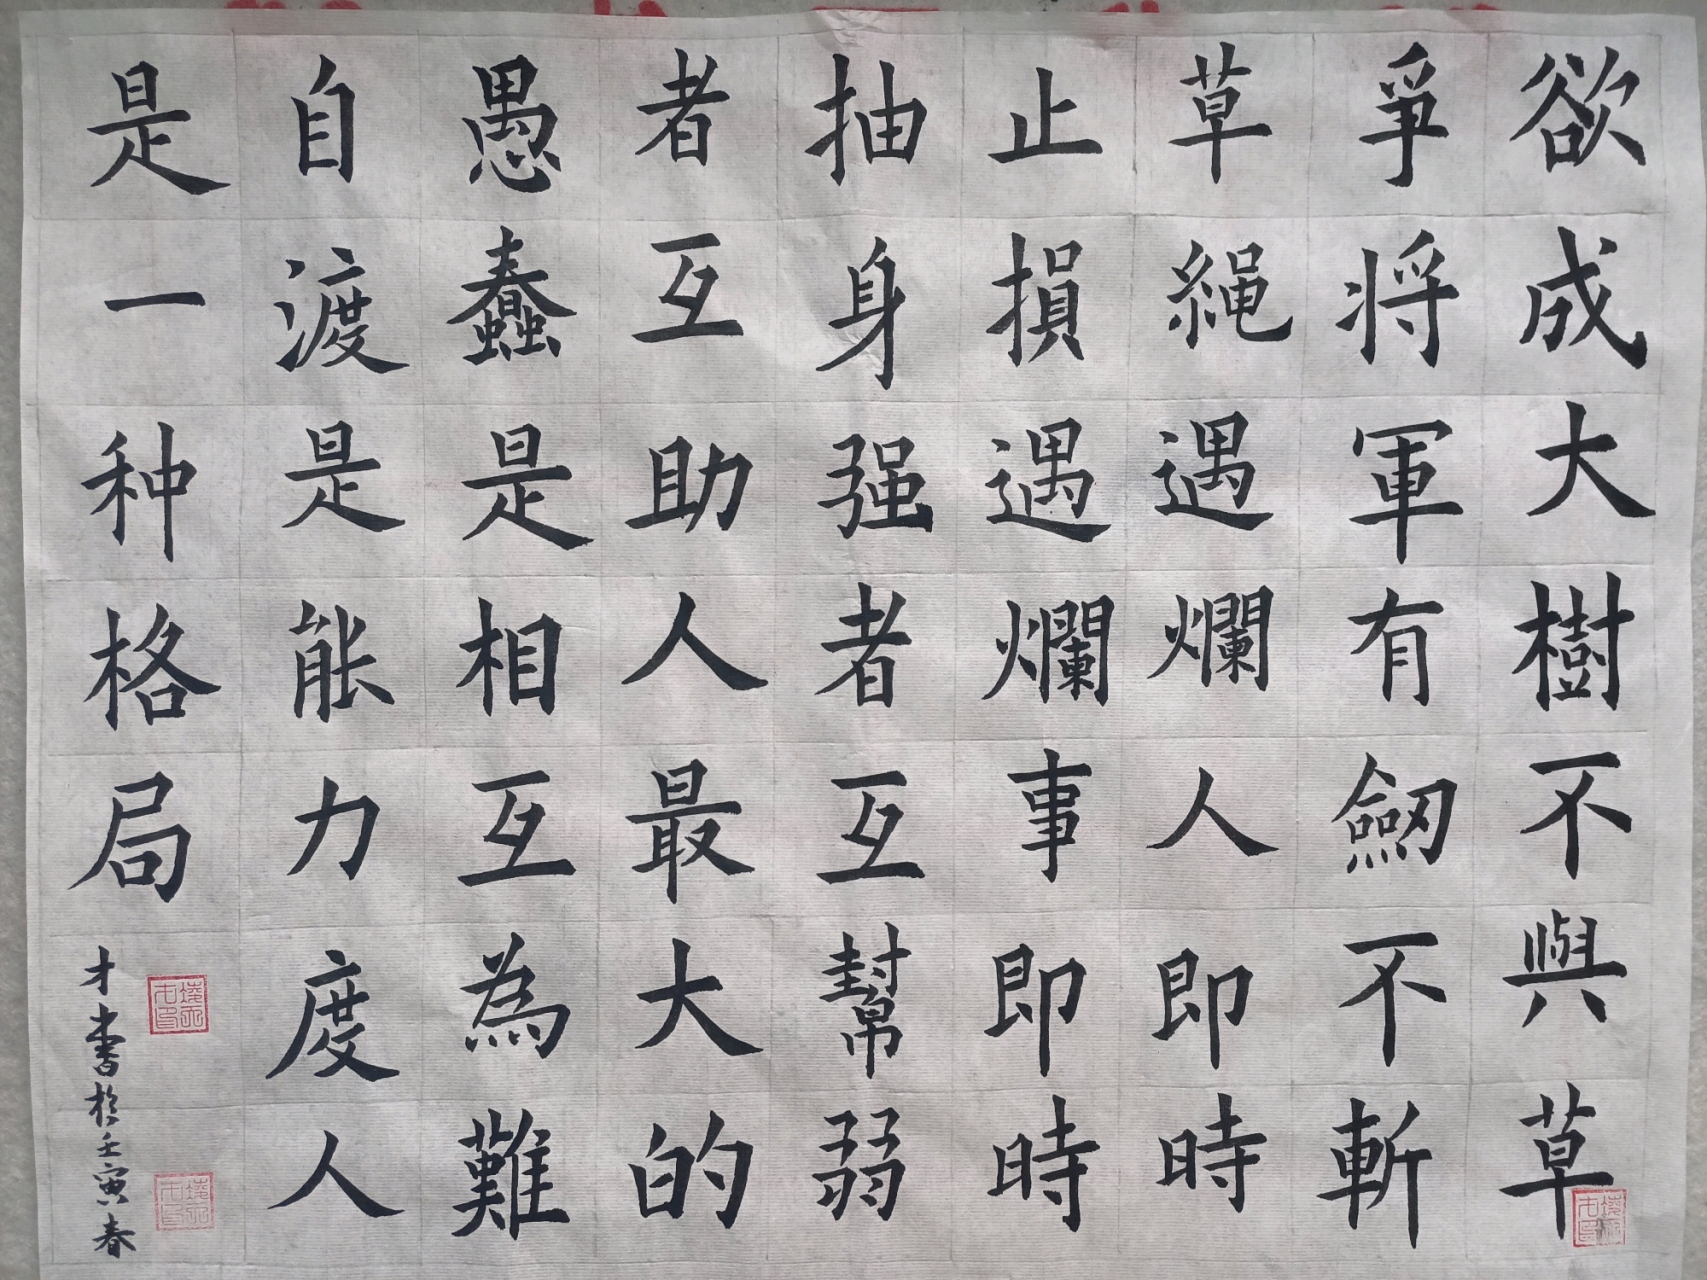 欲成大樹不與草
爭将軍有劒不斬
草繩遇爛人即時
止損遇爛事即時
抽身强者互幫弱
者互助人最大的
愚蠢是相互為難
自渡是能力度人
是一种格局
才書於壬寅春